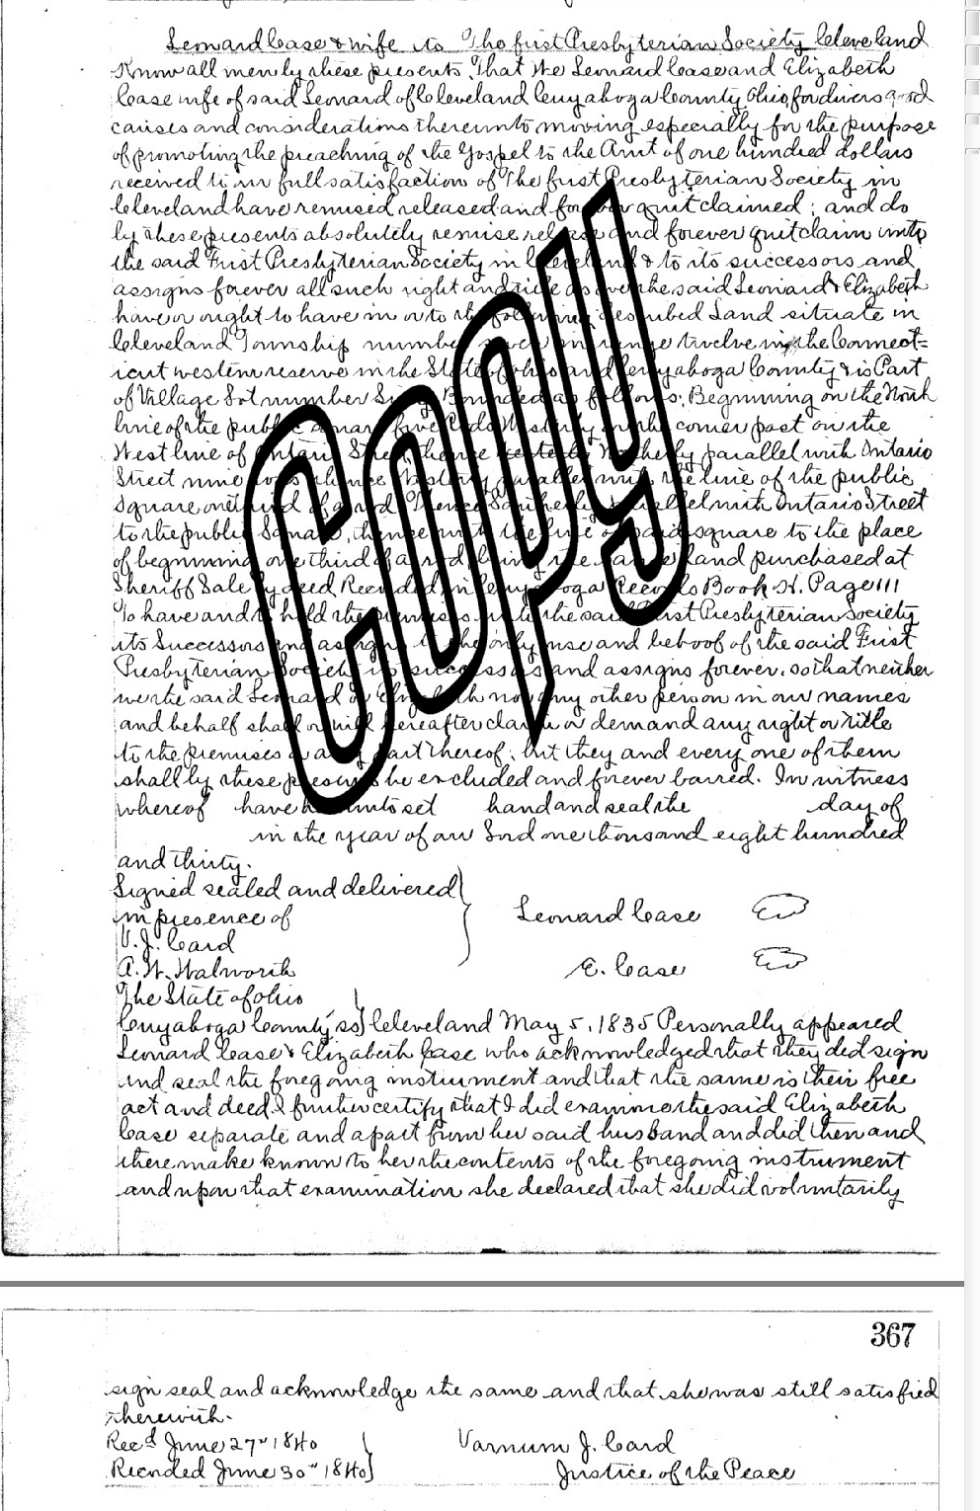 Leonard Case & wife to The first Presbyterian Society Cleveland
Know all men by these presents, That We Leonard Case and Elizabeth
Case wife of said Leonard of Cleveland Cuyahoga County Ohio for divers good
causes and considerations thereunto moving especially for the purpose
of promoting the preaching of the Gospel to the Amt of one hundred dollars
received to in full satisfaction of The first Presbyterian Society in
Cleveland have remised released and forever quit claimed; and do
by these presents absolutely remise release and forever quit claim unto
the said First Presbyterian Society in Cleveland & to its successors and
assigns forever all such right and title as we the said Leonard & Elizabeth
have or ought to have in or to the following described Land situate in
Cleveland Township number seven in range twelve in the Connect=
icut western reserve in the State of Ohio and Cuyahoga County & is Part
of Village Lot number Bounded as follows: Beginning on the North
line of the public square five Rods Westerly from the corner post on the
West line of Ontario Street thence Northerly parallel with Ontario
Street nine rods thence Westerly parallel with the line of the public
square one third of a rod Thence Southerly parallel with Ontario Street
to the public Square, thence with the line of said square to the place
of beginning one third of a rod, being the same land purchased at
Sheriff Sale by deed Recorded in Cuyahoga Records Book H. Page 111
To have and to hold the premises unto the said First Presbyterian Society
its Successors and assigns to the only use and behoof of the said First
Presbyterian Society its successors and assigns forever. so that neither
we the said Leonard or Elizabeth nor any other person in our names
and behalf shall or will hereafter claim or demand any right or title
to the premises or any part thereof; but they and every one of them
shall by these presents be excluded and forever barred. In witness
whereof have hereunto set hand and seal the day of
in the year of our Lord one thousand eight hundred
and thirty.
Signed sealed and delivered
in presence of Leonard Case
V. J. Card
A. W. Walworth E. Case
The State of Ohio
Cuyahoga County ss Cleveland May 5, 1835 Personally appeared
Leonard Case & Elizabeth Case who acknowledged that they did sign
and seal the foregoing instrument and that the same is their free
act and deed & further certify that I did examine the said Elizabeth
Case separate and apart from her said husband and did then and
there make known to her the contents of the foregoing instrument
and upon that examination she declared that she did voluntarily
Copy
367
sign seal and acknowledge the same and that she was still satisfied
therewith.
Recd June 27" 1840 Varnum J. Card
Recorded June 30" 1840 Justice of the Peace